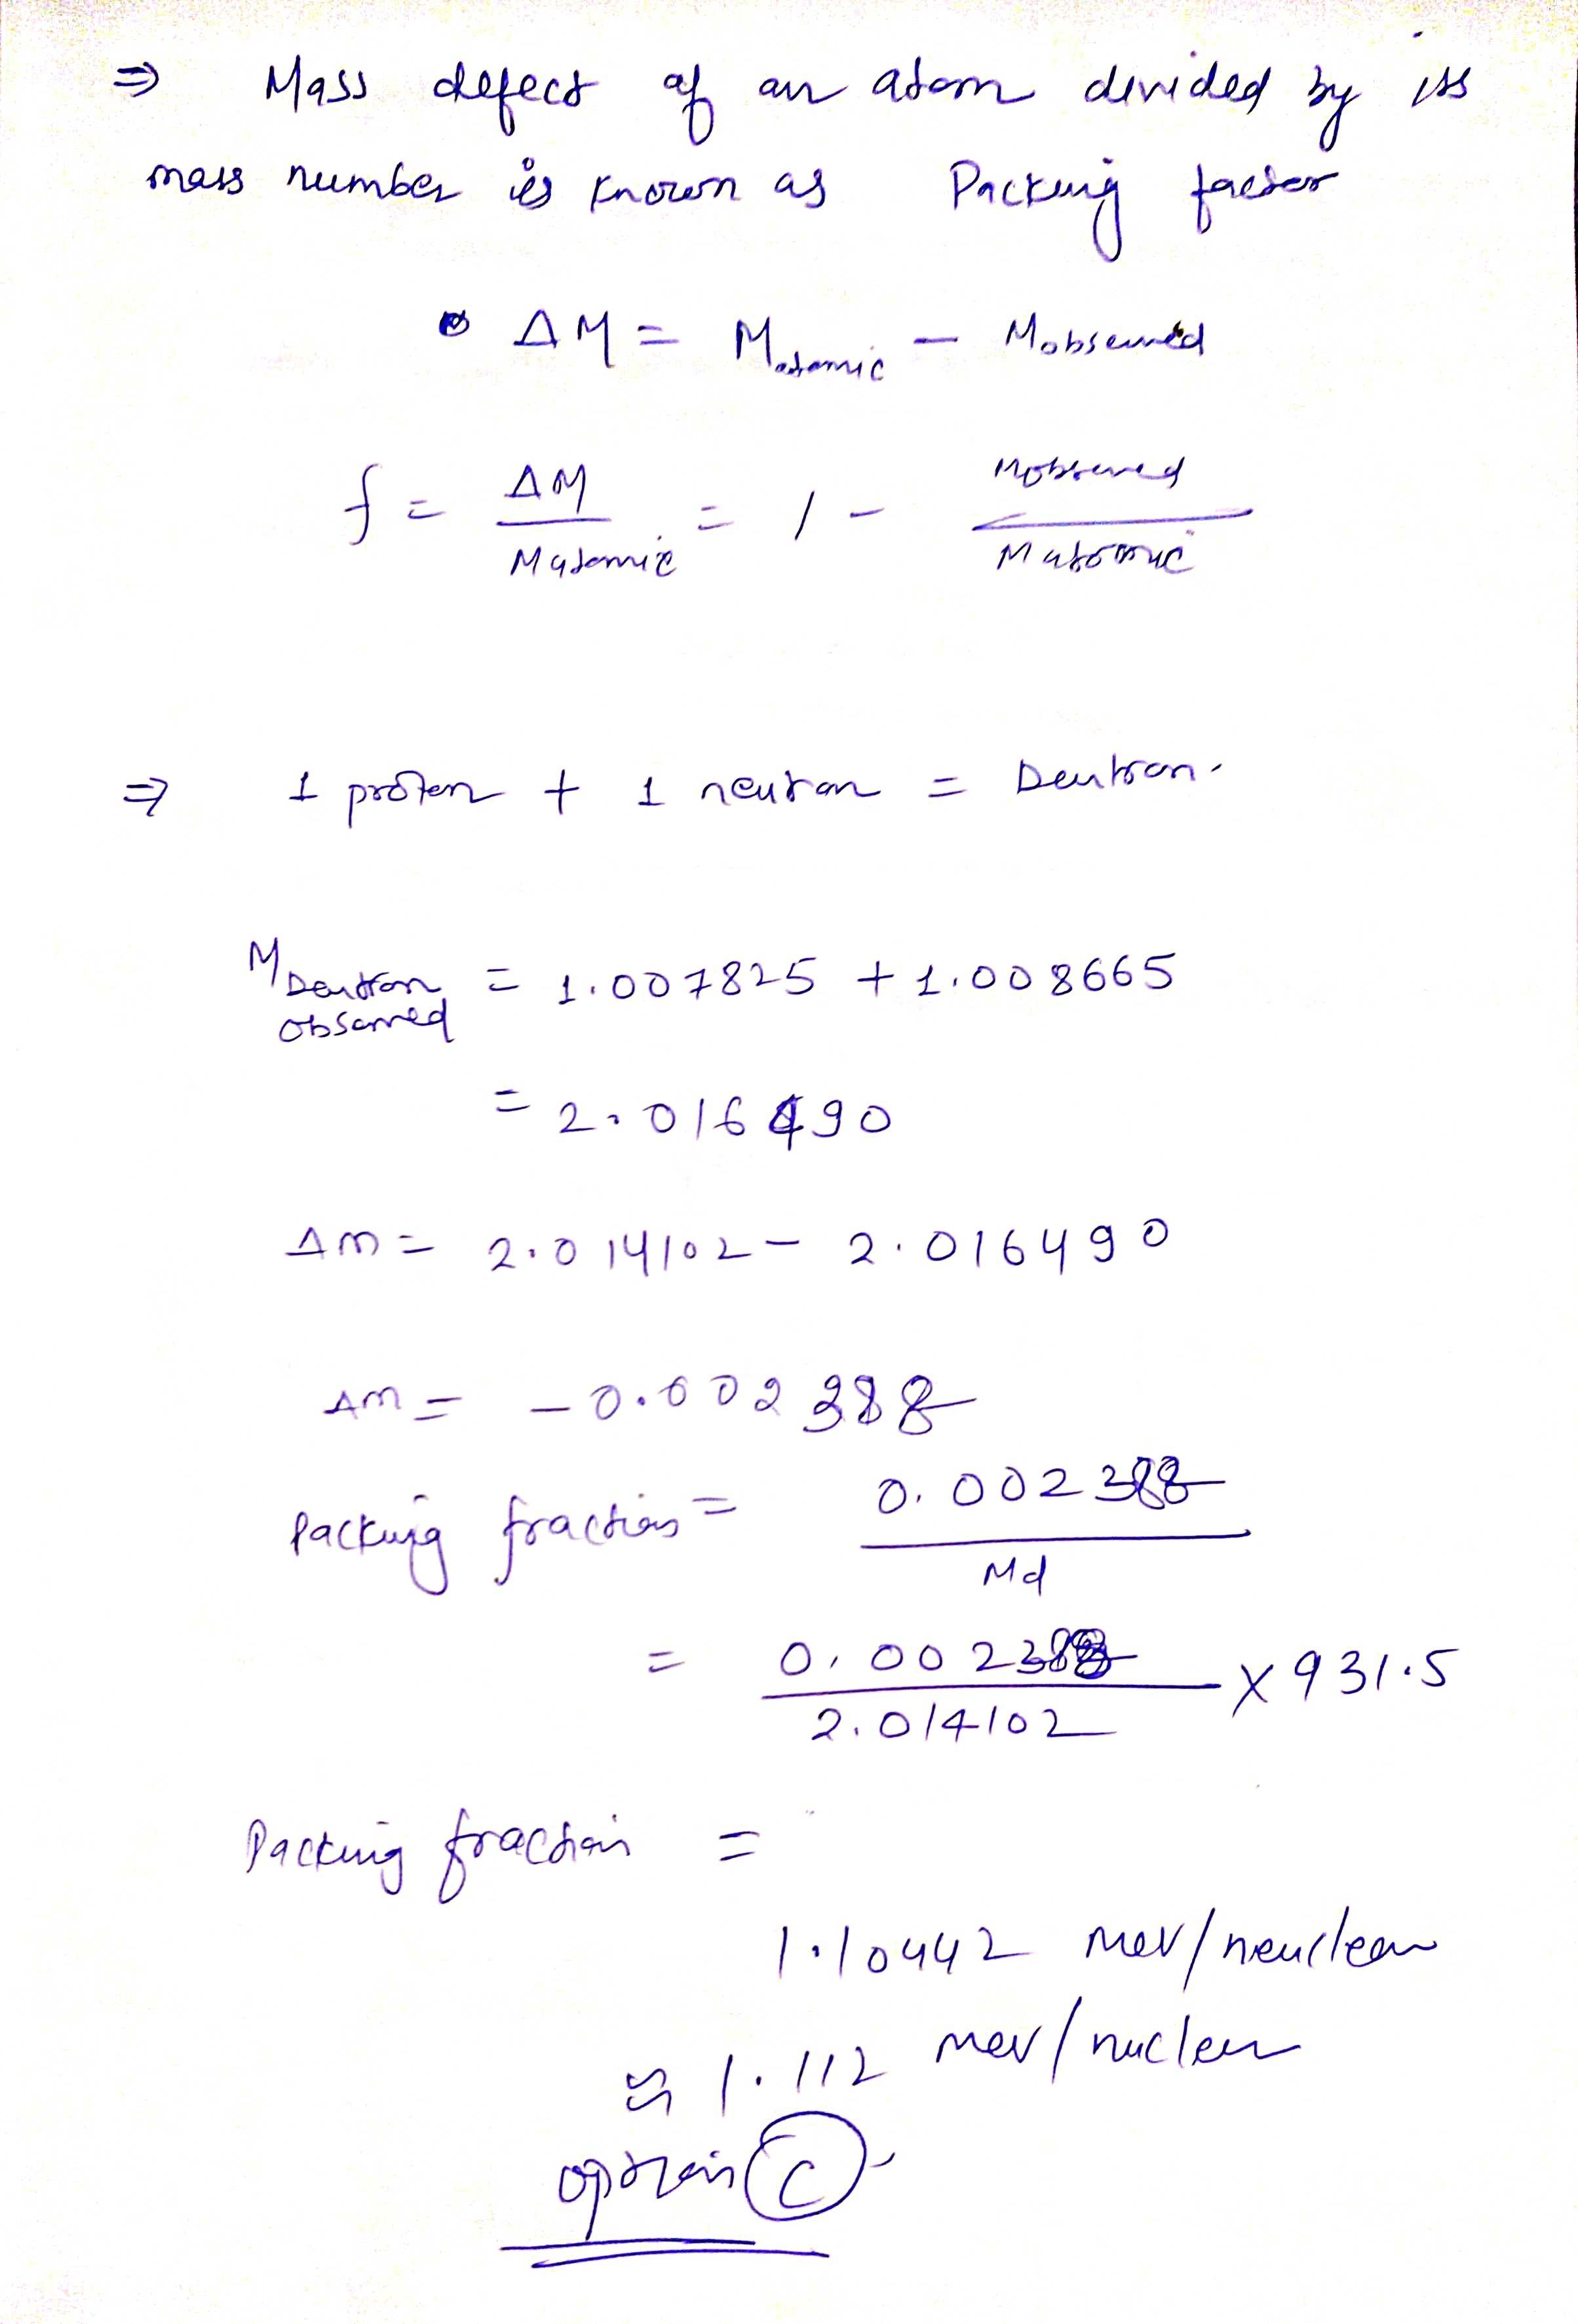 ⇒ Mass defect of an atom divided by its
mass number is known as Packing factor
ΔM = Matomic – Mobserved
f = ΔM / Matomic = 1 - Mobserved / Matomic
⇒ 1 proton + 1 neutron = Deutron.
MDeutron observed = 1.007825 + 1.008665
= 2.016490
Δm = 2.014102 - 2.016490
Δm = -0.002388
Packing fraction = 0.002388 / Md
= 0.002388 / 2.014102 × 931.5
Packing fraction =
1.10442 mev/neuclean
≈ 1.112 mev/nuclear
option C